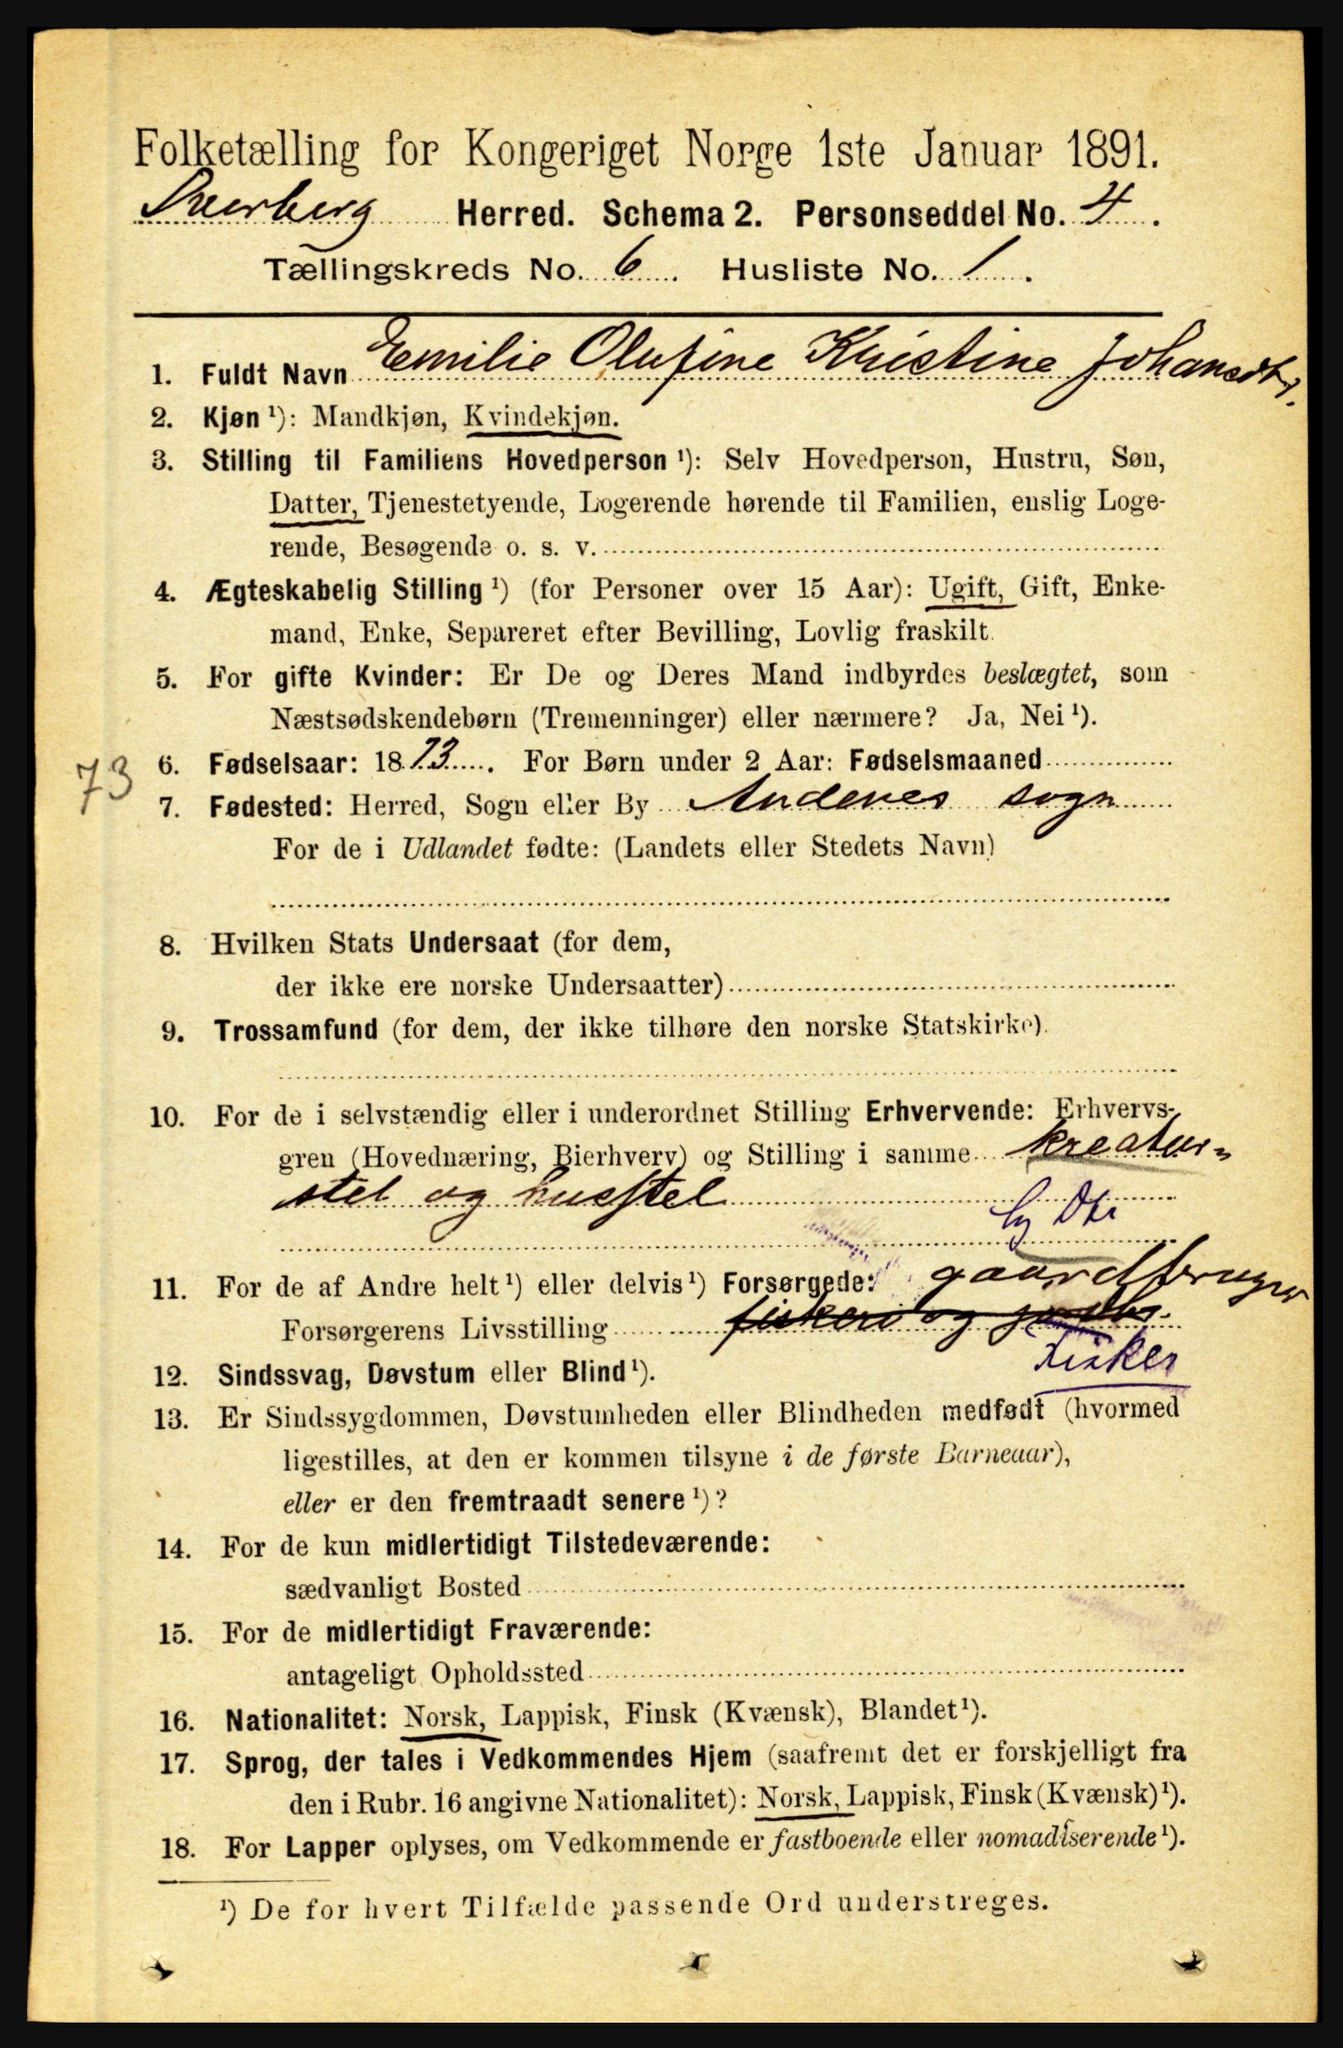 Folketælling for Kongeriget Norge 1ste Januar 1891.
Dverberg Herred. Schema 2. Personseddel No. 4.
Tællingskreds No. 6. Husliste No. 1.
1. Fuldt Navn Emilie Olufine Kristine Johansdtr.
2. Kjøn ¹): Mandkjøn, Kvindekjøn.
3. Stilling til Familiens Hovedperson ¹): Selv Hovedperson, Hustru, Søn,
Datter, Tjenestetyende, Logerende hørende til Familien, enslig Loge-
rende, Besøgende o. s. v.
4. Ægteskabelig Stilling ¹) (for Personer over 15 Aar): Ugift, Gift, Enke-
mand, Enke, Separeret efter Bevilling, Lovlig fraskilt.
5. For gifte Kvinder: Er De og Deres Mand indbyrdes beslægtet, som
Næstsødskendebørn (Tremenninger) eller nærmere? Ja, Nei ¹).
73
6. Fødselsaar: 1873. For Børn under 2 Aar: Fødselsmaaned
7. Fødested: Herred, Sogn eller By Andenes sogn
For de i Udlandet fødte: (Landets eller Stedets Navn)
8. Hvilken Stats Undersaat (for dem,
der ikke ere norske Undersaatter)
9. Trossamfund (for dem, der ikke tilhøre den norske Statskirke).
10. For de i selvstændig eller i underordnet Stilling Erhvervende: Erhvervs-
gren (Hovednæring, Bierhverv) og Stilling i samme kreatur-
stel og husstel
Dtr
11. For de af Andre helt ¹) eller delvis ¹) Forsørgede: gaardbruger
Forsørgerens Livsstilling fiskeri og jordbr.
Fisker
12. Sindssvag, Døvstum eller Blind ¹).
13. Er Sindssygdommen, Døvstumheden eller Blindheden medfødt (hvormed
ligestilles, at den er kommen tilsyne i de første Barneaar),
eller er den fremtraadt senere ¹)?
14. For de kun midlertidigt Tilstedeværende:
sædvanligt Bosted
15. For de midlertidigt Fraværende:
antageligt Opholdssted
16. Nationalitet: Norsk, Lappisk, Finsk (Kvænsk), Blandet ¹).
17. Sprog, der tales i Vedkommendes Hjem (saafremt det er forskjelligt fra
den i Rubr. 16 angivne Nationalitet): Norsk, Lappisk, Finsk (Kvænsk) ¹).
18. For Lapper oplyses, om Vedkommende er fastboende eller nomadiserende ¹).
¹) De for hvert Tilfælde passende Ord understreges.